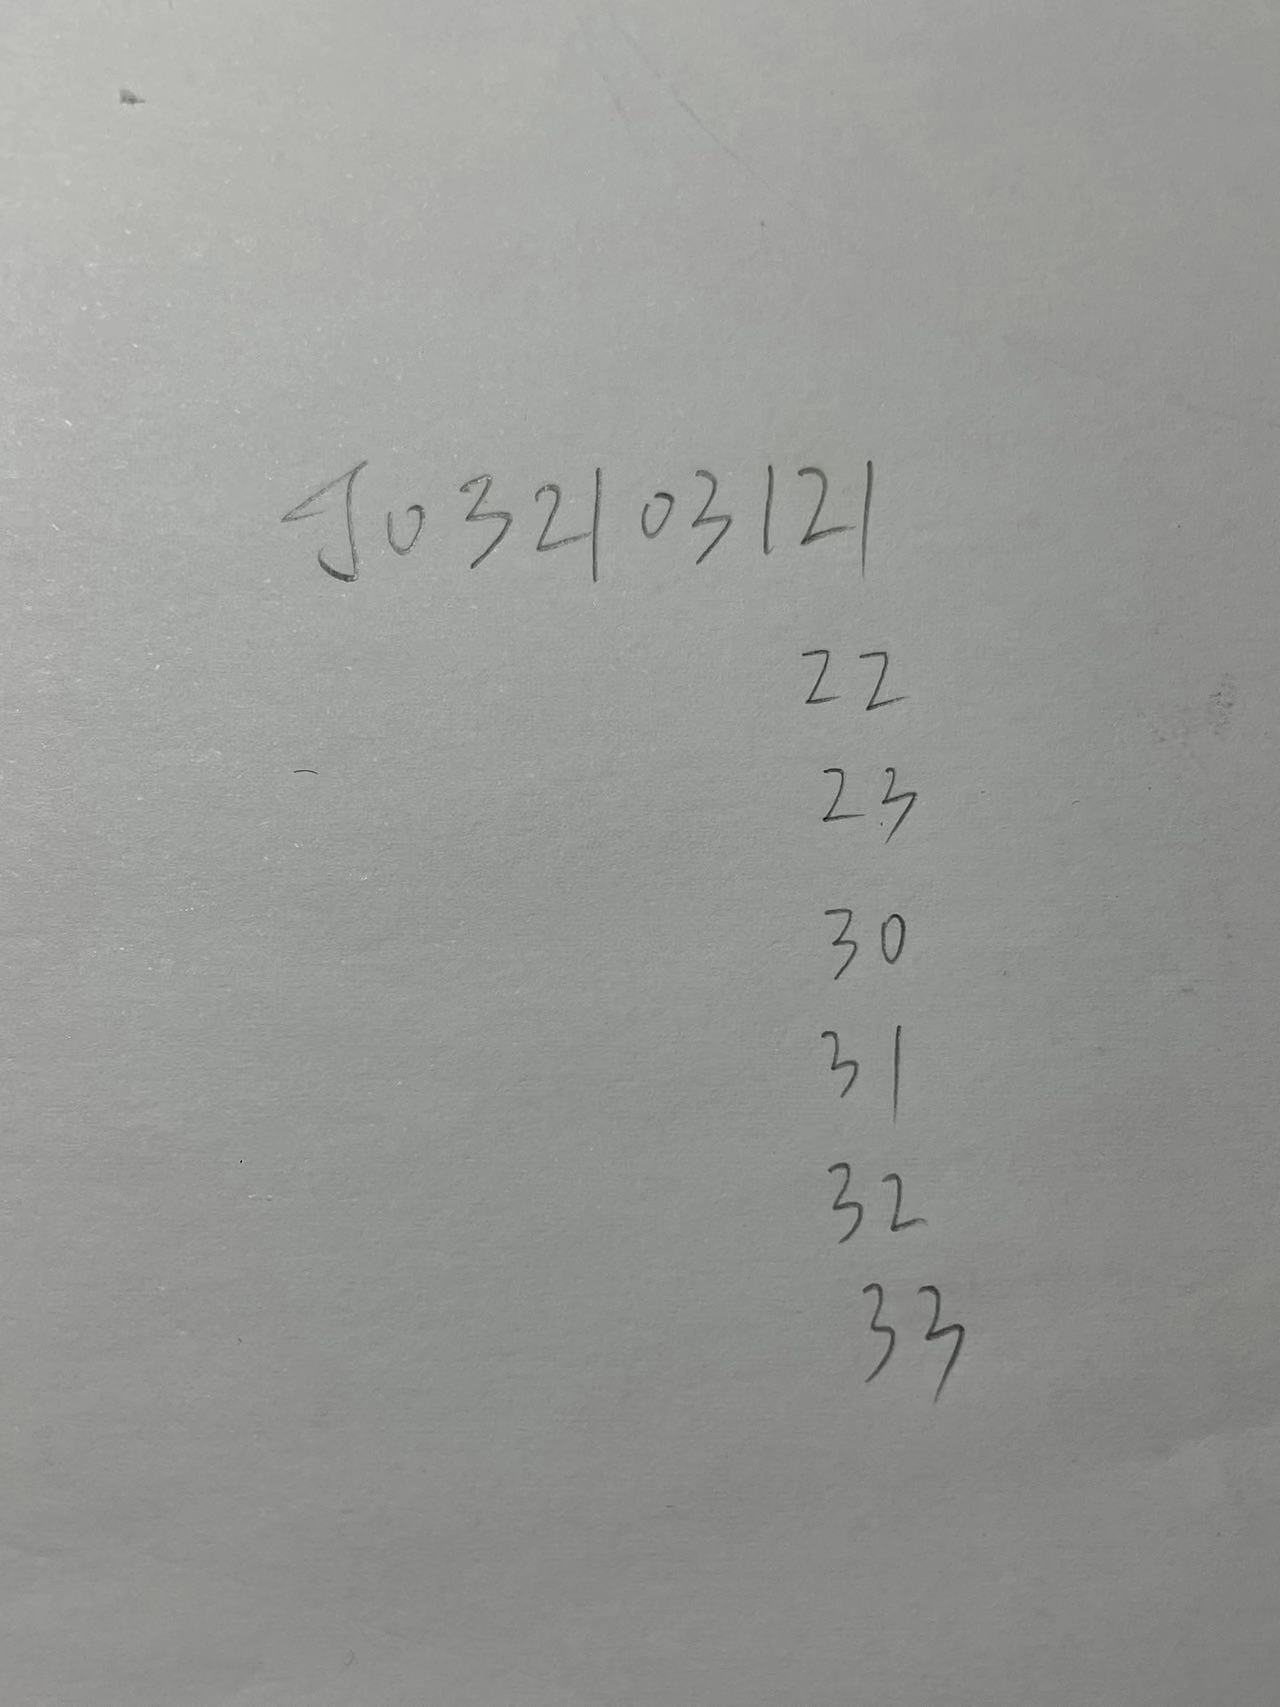 J032103121
22
23
30
31
32
33